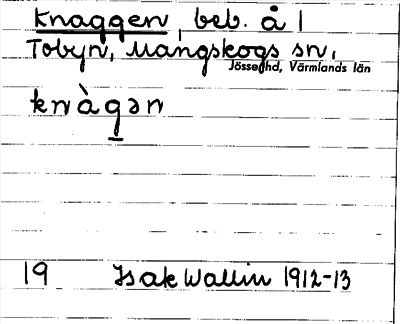 Knaggen, beb. å |
Tobyn, Mangskogs sn,
Jösse hd, Värmlands län
knàgən
19 Isak Wallin 1912-13